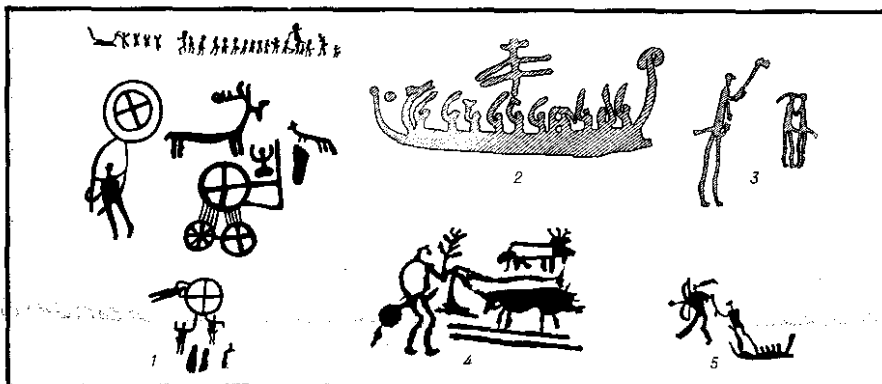 2
3
1
4
5